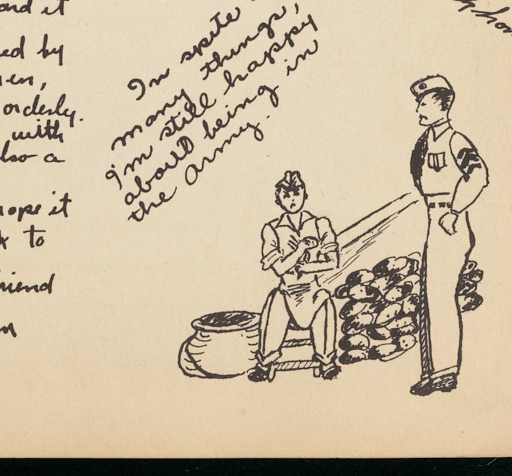 and it
ed by
en,
orderly.
with
lso a
hope it
to
riend
In spite
many things,
I'm still happy
about being in
the army.